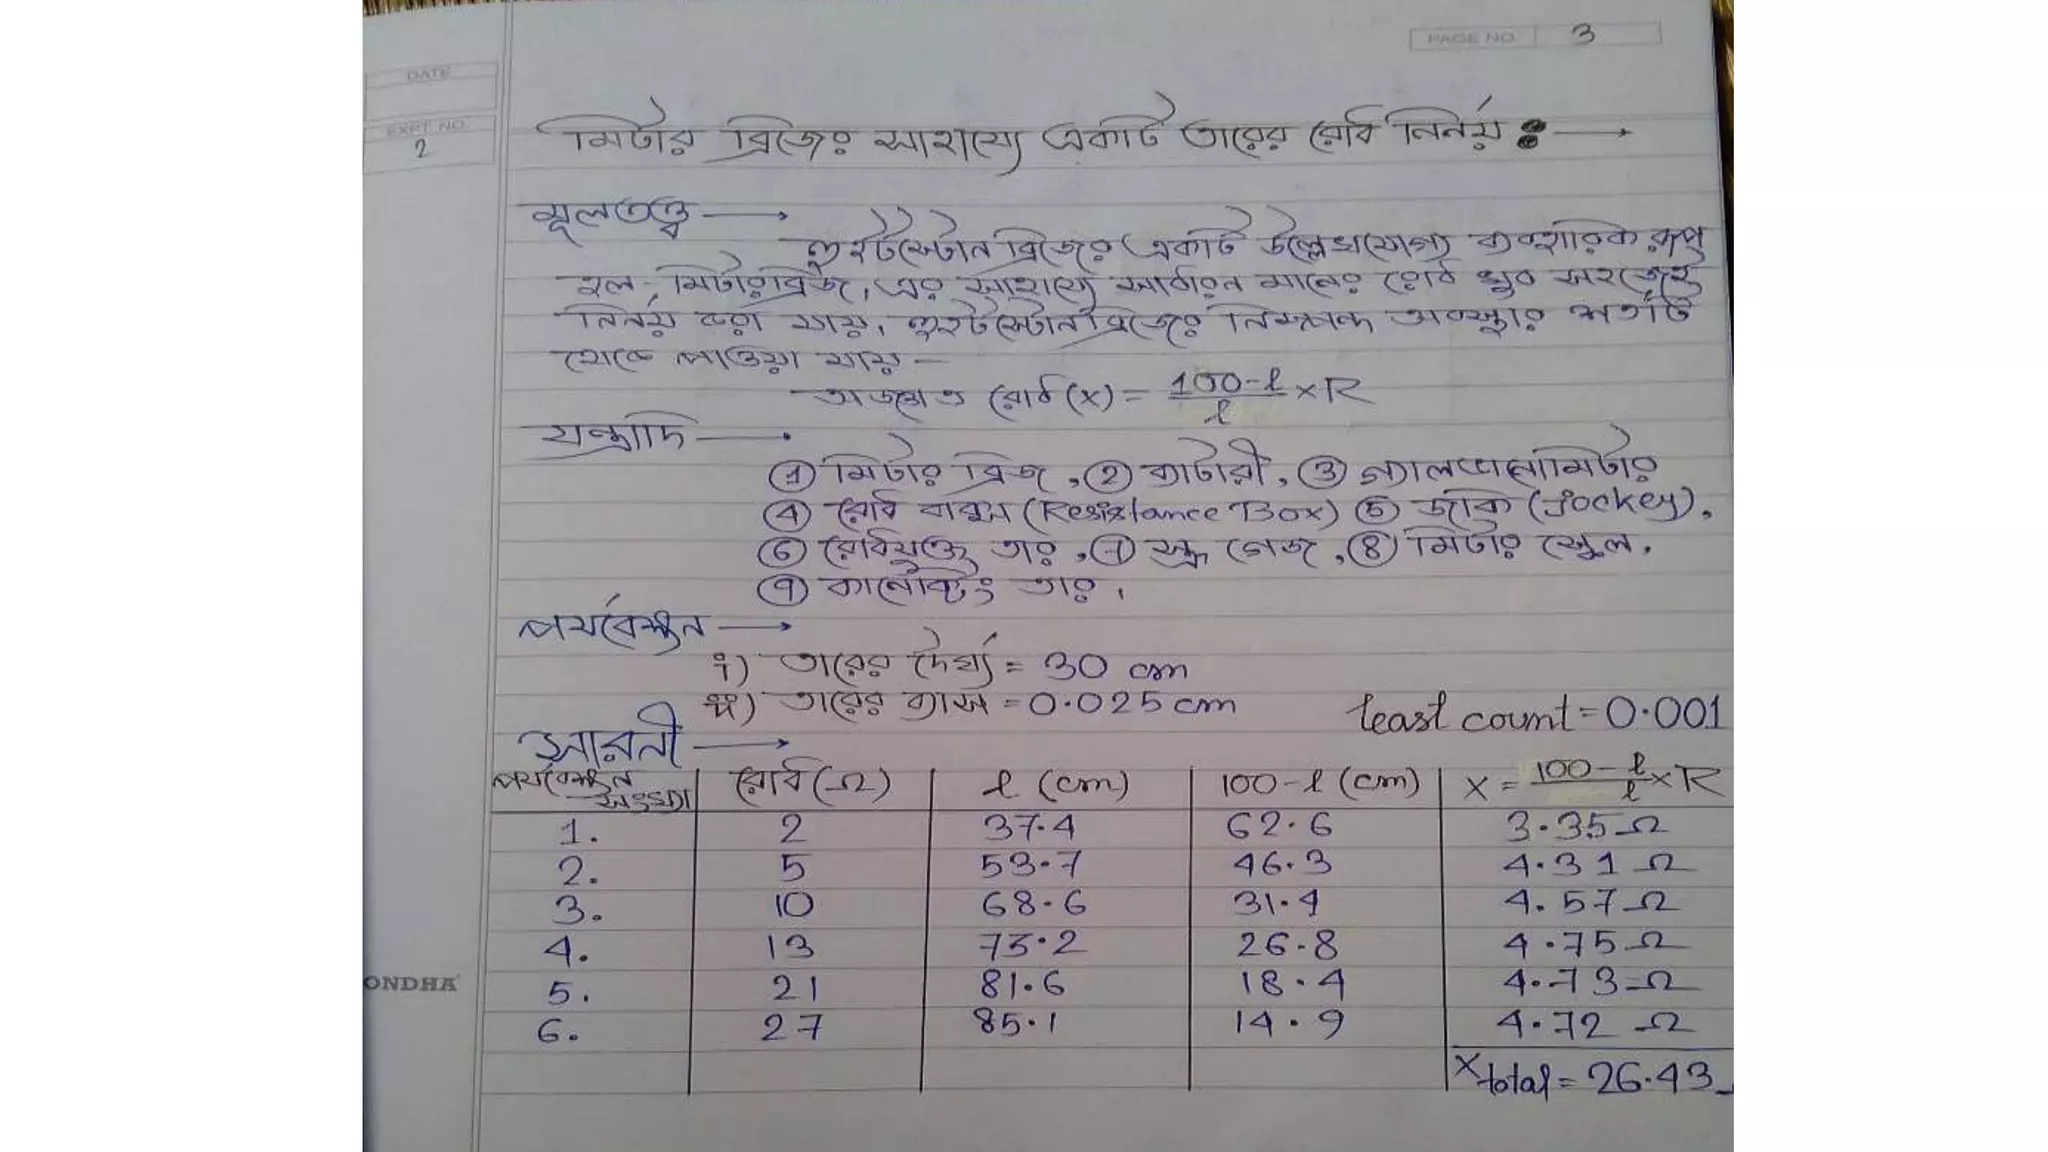 PAGE NO. 3
DATE
EXPT NO.
2
মিটার ব্রিজের সাহায্যে একটি তারের রোধ নির্নয় : →
মূলতত্ত্ব →
হুইটস্টোন ব্রিজের একটি উল্লেখযোগ্য ব্যবহারিক রূপ
হল মিটারব্রিজ, এর সাহায্যে সাধারন মানের রোধ খুব সহজেই
নির্নয় করা যায়, হুইটস্টোনব্রিজের নিস্পন্দ অবস্থার শর্তটি
থেকে পাওয়া যায় –
অজ্ঞাত রোধ (x) = 100-l/l × R
যন্ত্রাদি →
① মিটার ব্রিজ, ② ব্যাটারী, ③ গ্যালভানোমিটার
④ রোধ বাক্স (Resistance Box) ⑤ জকি (Jockey),
⑥ রোধযুক্ত তার, ⑦ স্ক্রু গেজ, ⑧ মিটার স্কেল,
⑨ কানেক্টিং তার,
পর্যবেক্ষন →
i) তারের দৈর্ঘ্য = 30 cm
ii) তারের ব্যাস = 0.025 cm least count = 0.001
সারনী →
পর্যবেক্ষন সংখ্যা রোধ (Ω) l (cm) 100-l (cm) x = 100-l/l × R
1. 2 37.4 62.6 3.35 Ω
2. 5 53.7 46.3 4.31 Ω
3. 10 68.6 31.4 4.57 Ω
4. 13 73.2 26.8 4.75 Ω
5. 21 81.6 18.4 4.73 Ω
6. 27 85.1 14.9 4.72 Ω
x total = 26.43
ONDHA